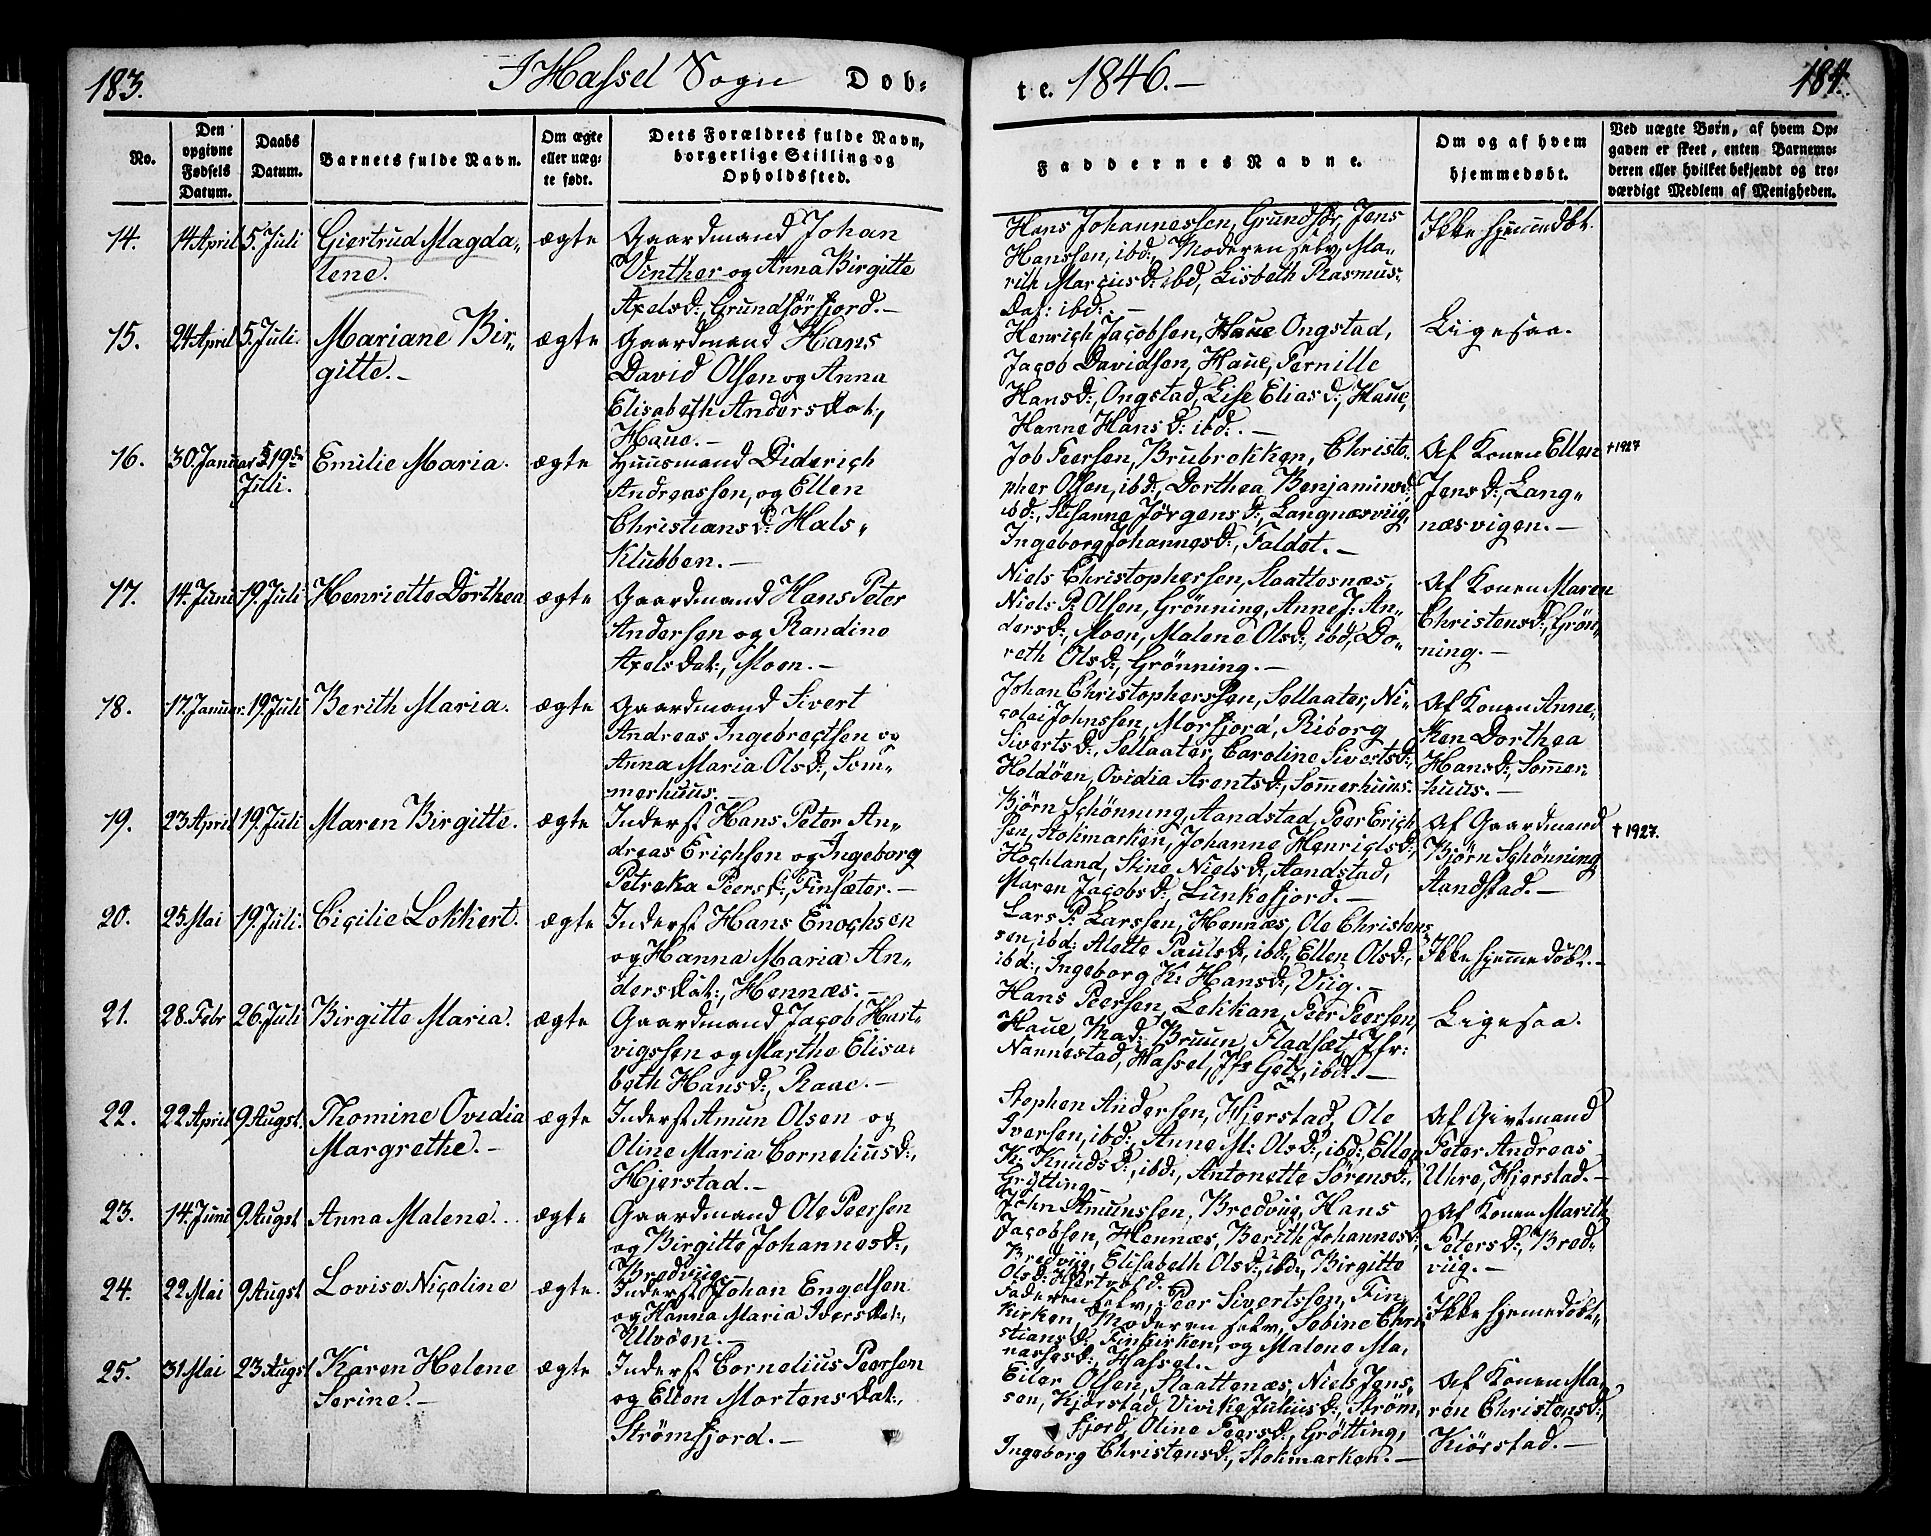 183.
I Hassel Sogn Døb-
te. 1846.-
184.
No.
Den opgivne Fødsels Datum.
Daabs Datum.
Barnets fulde Navn.
Om ægte eller uæg-te født.
Dets Forældres fulde Navn, borgerlige Stilling og Opholdssted.
Faddernes Navne.
Om og af hvem hjemmedøbt.
Ved uægte Børn, af hvem Op-
gaven er skeet, enten Barnemo-
deren eller hvilket bekjendt og tro-
værdigt Medlem af Menigheden.
14. 14 April 5. Juli Giertrud Magda-
lene.
ægte
Gaardmand Johan
Vinther og Anna Birgitte
Axelsd:, Grundførfjord.-
Hans Johannessen, Grundfør, Jens
Hanssen, ibd:, Moderen selv, Ma-
rith Marcusd: ibd, Lisbeth Rasmus-
Dat: ibd:-
Ikke hjemmedøbt.
15. 24 April 5. Juli. Mariane Bir-
gitte.-
ægte
Gaardmand Hans
David Olsen og Anna
Elisabeth Andersdat:,
Haue.-
Henrich Jacobsen, Ongstad,
Jacob Davidsen, Haue, Pernille
Hansd:, Ongstad, Lise Eliasd:, Haue,
Hanne Hansd: ibd:.-
Ligesaa.
16. 30. Januar 19de
Juli.
Emilie Maria. ægte
Huusmand Diderich
Andreassen, og Ellen
Christiansd: Hals-
klubben.-
Job Peersen, Brubrekken, Christo-
pher Olsen, ibd:, Dorthea Benjaminsd:
ibd:, Susanne Jørgensd:, Langnæsviig,
Ingeborg Johannesd:, Faldet.-
Af Konen Ellen
Jensd:, Lang-
næsvigen.-
† 1927
17. 14. Juni 19. Juli Henriette Dorthea ægte
Gaardmand Hans Peter
Andersen og Randine
Axelsdat:, Moen.-
Niels Christophersen, Slaattesnæs,
Niels P: Olsen, Grønning, Anne J: An-
dersd:, Moen, Malene Olsd:, ibd, Do-
reth Olsd:, Grønning.-
Af Konen Maren
Christensd:, Grøn-
ning.-
18. 17. Januar. 19. Juli Berith Maria. ægte
Gaardmand Sivert
Andreas Ingebregtsen og
Anna Maria Olsd:, Som-
merhuus.-
Johan Christopherssen, Sellaater, Ni-
colai Johnssen, Morfjord, Riborg
Sivertsd:, Sellaater, Caroline Sivertsd:,
Holdøen, Ovidia Arentsd:, Sommerhuus.
Af Konen Anne-
ken Dorthea
Hansd:, Sommer-
huus.-
19. 23 April 19. Juli Maren Birgitte. ægte
Inderst Hans Peter An-
dreas Erichsen og Ingeborg
Petreka Peersd:, Finsæter.-
Bjørn Schønning, Aandstad, Peer Erich-
sen, Stokmarken, Johanne Henrichsd:,
Hochland, Stine Nielsd:, Aandstad,
Maren Jacobsd:, Lunkefjord.-
Af Gaardmand
Bjørn Schønning
Aandstad.-
† 1927.
20. 25. Mai 19. Juli. Cicilie Lokkert. ægte
Inderst Hans Enochsen
og Hanna Maria An-
dersdat:, Hennæs.-
Lars P: Larssen, Hennæs, Ole Christens-
sen, ibd: Alette Paulsd:, ibd:, Ellen Olsd:,
ibd:, Ingeborg K: Hansd:, Viig.-
Ikke hjemmedøbt.-
21. 28. Febr 26. Juli Birgitte Maria. ægte
Gaardmand Jacob Hart-
vigssen og Marthe Elisa-
beth Hansd:, Raae.-
Hans Peersen, Lekkan, Peer Peersen,
Haue, Mad: Bruun, Fladsæt, Jfr:
Nannestad, Hassel, Jfr Getz, ibd:-
Ligesaa.
22. 22 April 9 Augst. Thomine Ovidia
Margrethe.-
ægte
Inderst Amun Olsen og
Oline Maria Corneliusd:,
Hjerstad.-
Stephen Andersen, Hjerstad, Ole
Iversen, ibd:, Anne M: Olsd:, ibd:, Ellen
K: Knudsd:, ibd:, Antonette Sørensd:,
Grytting.-
Af Givtmand
Peter Andreas
Uhre, Hjerstad.-
23. 14. Juni 9 Augst Anna Malene. ægte
Gaardmand Ole Peersen
og Birgitte Johannesd:,
Bredviig.
John Amunssen, Bredviig, Hans
Jacobsen, Hennæs, Berith Johannesd:,
Bredviig, Elisabeth Olsd:, ibd:, Birgitte
Olsd:
Af Konen Marith
Petersd:, Bred-
viig.-
24. 22 Mai 9 Augst Lovise Nicoline ægte.
Inderst Johan Engelsen
og Hanna Maria Iversdat:,
Ulvøen.-
Faderen selv, Peer Sivertssen, Fin-
kirken, Moderen selv, Sebine Chri-
stiansd:, Finkirken, og Malene Ma-
, Hassel.-
Ikke hjemmedøbt.-
25. 31 Mai 23 Augst Karen Helene
Serine.-
ægte
Inderst Cornelius Peersen
og Ellen Mortensdat:,
Strømfjord.-
Eiler Olsen, Slaattenæs, Niels Jens-
sen, Kjørstad, Vivike Juliusd:, Strøm-
fjord, Oline Peersd:, Grøtting,
Ingeborg Christensd:, Stokmarken.-
Af Konen Ma-
ren Christensd:,
Kiørstad.-